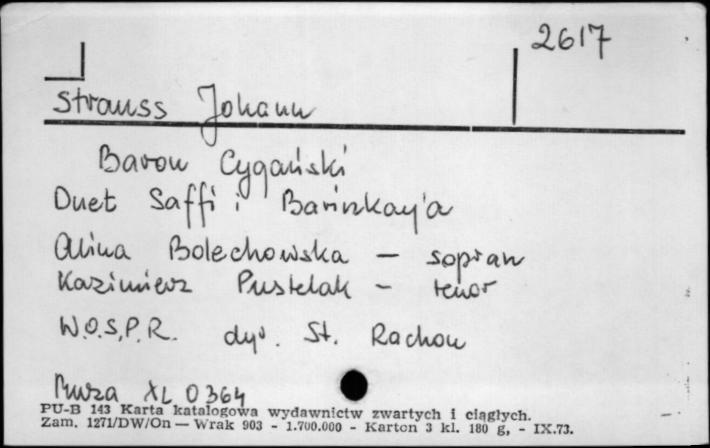 2617
Strauss Johann
Baron Cygański
Duet Saffi i Barinkay'a
Alina Bolechowska - sopran
Kazimierz Pustelak - tenor
W.O.S.P.R. dyr. St. Rachoń
Muza XL 0364
PU-B 143 Karta katalogowa wydawnictw zwartych i ciągłych.
Zam. 1271/DW/On — Wrak 903 - 1.700.000 - Karton 3 kl. 180 g, - IX.73.